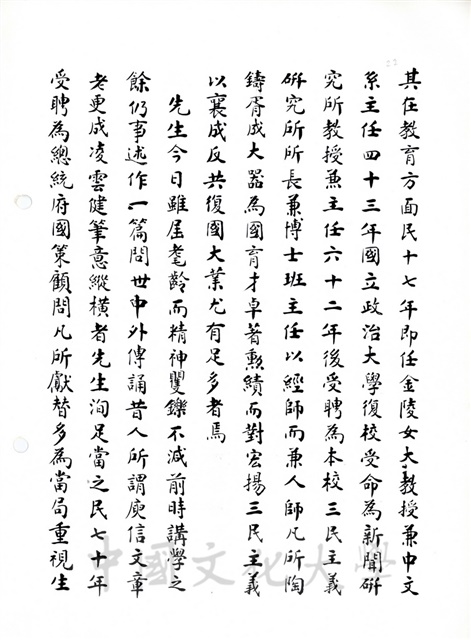 其任教育方面民十七年即任金陵女大教授兼中文
系主任四十三年國立政治大學復校受命為新聞研
究所教授兼主任六十二年後受聘為本校三民主義
研究所所長兼博士班主任以經師而兼人師凡所陶
鑄胥成大器為國育才卓著勳績而對宏揚三民主義
以襄成反共復國大業尤有足多者焉
先生今日雖屆耄齡而精神矍鑠不減前時講學之
餘仍事述作一篇問世中外傳誦昔人所謂庾信文章
老更成凌雲健筆意縱橫者先生洵足當之民七十年
受聘為總統府國策顧問凡所獻替多為當局重視生
中國文化大學